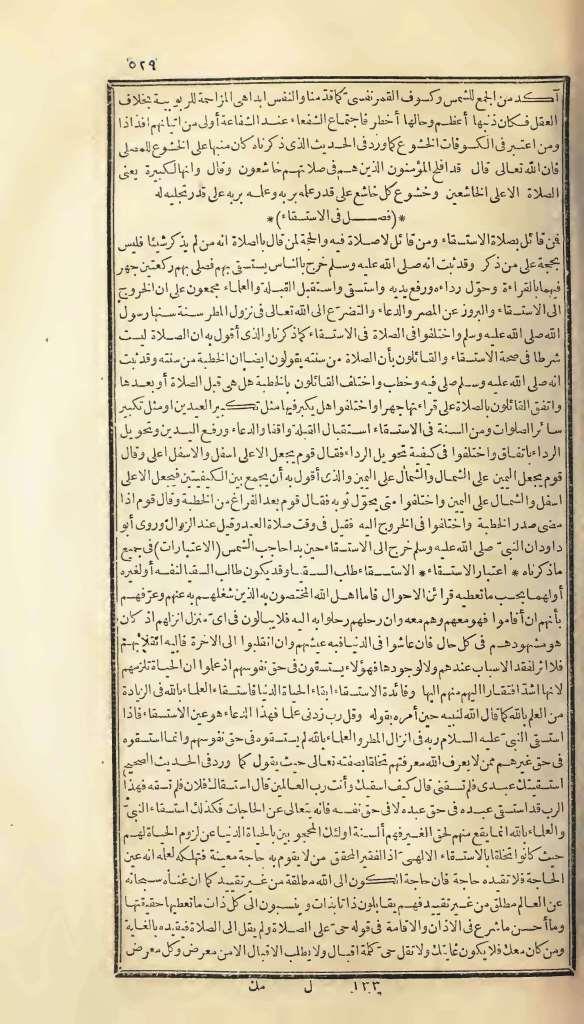 ٥٢٩
آكد من الجمع للشمس وكسوف القمر نفسى كما قدّمنا والنفس ابدا هى المزاحمة للربوبية بخلاف
العقل فكان ذنبها أعظم وحالها أخطر فاجتماع الشفعاء عند الشفاعة أولى من اتيانهم افذاذا
ومن اعتبر فى الكسوفات الخشوع كما ورد فى الحديث الذى ذكرناه كان منبها على الخشوع للمصلى
فان الله تعالى قال قد افلح المؤمنون الذين هم فى صلاتهم خاشعون وقال وانها لكبيرة يعنى
الصلاة الا على الخاشعين وخشوع كل خاشع على قدر علمه بربه وعلمه بربه على قدر تجليه له
*(فصل فى الاستسقاء)*
فمن قائل بصلاة الاستسقاء ومن قائل لا صلاة فيه والحجة لمن قال بالصلاة انه من لم يذكر شيئا فليس
بحجة على من ذكر وقد ثبت انه صلى الله عليه وسلم خرج بالناس يستسقى بهم فصلى بهم ركعتين جهر
فيهما بالقراءة وحوّل رداءه ورفع يديه واستسقى واستقبل القبلة والعلماء مجمعون على ان الخروج
الى الاستسقاء والبروز عن المصر والدعاء والتضرع الى الله تعالى فى نزول المطر سنة سنها رسول
الله صلى الله عليه وسلم واختلفوا فى الصلاة فى الاستسقاء كما ذكرنا والذى أقول به ان الصلاة ليست
شرطا فى صحة الاستسقاء والقائلون بأن الصلاة من سنته يقولون ايضا ان الخطبة من سنته وقد ثبت
انه صلى الله عليه وسلم صلى فيه وخطب واختلف القائلون بالخطبة هل هى قبل الصلاة أو بعدها
واتفق القائلون بالصلاة على قراءتها جهرا واختلفوا هل يكبر فيها مثل تكبير العيدين او مثل تكبير
سائر الصلوات ومن السنة فى الاستسقاء استقبال القبلة واقفا والدعاء ورفع اليدين وتحويل
الرداء باتفاق واختلفوا فى كيفية تحويل الرداء فقال قوم يجعل الاعلى اسفل والاسفل اعلى وقال
قوم يجعل اليمين على الشمال والشمال على اليمين والذى أقول به أن يجمع بين الكيفيتين فيجعل الاعلى
اسفل والشمال على اليمين واختلفوا متى يحوّل ثوبه فقال قوم بعد الفراغ من الخطبة وقال قوم اذا
مضى صدر الخطبة واختلفوا فى الخروج اليه فقيل فى وقت صلاة العيد وقيل عند الزوال وروى أبو
داود ان النبىّ صلى الله عليه وسلم خرج الى الاستسقاء حين بدا حاجب الشمس (الاعتبارات) فى جميع
ما ذكرناه * اعتبار الاستسقاء * الاستسقاء طلب السقيا وقد يكون طالب السقيا لنفسه أو لغيره
أو لهما بحسب ما تعطيه قرائن الاحوال فاما اهل الله المختصون به الذين شغلهم به عنهم وعرّفهم
بأنهم ان أقاموا فهو معهم وهم معه وان رحلهم رحلوا به اليه فلا يبالون فى اى منزل انزلهم اذ كان
هو مشهودهم فى كل حال فان عاشوا فى الدنيا فبه عيشهم وان انقلبوا الى الاخرة فاليه انقلابهم
فلا اثر لفقد الاسباب عندهم ولا لوجودها فهؤلاء يستسقون فى حق نفوسهم اذ علموا ان الحياة تلزمهم
لانها اشدّ افتقارا اليهم منهم اليها وفائدة الاستسقاء ابقاء الحياة الدنيا فاستسقاء العلماء بالله فى الزيادة
من العلم بالله كما قال الله لنبيه حين أمره بقوله وقل رب زدنى علما فهذا الدعاء هو عين الاستسقاء فاذا
استسقى النبىّ عليه السلام ربه فى انزال المطر والعلماء بالله لم يستسقوه فى حق نفوسهم وانما استسقوه
فى حق غيرهم ممن لا يعرف الله معرفتهم تخلقا بصفته تعالى حيث يقول كما ورد فى الحديث الصحيح
استسقيتك عبدى فلم تسقنى قال كيف اسقيك وأنت رب العالمين قال استسقاك فلان فلم تسقه فهذا
الرب قد استسقى عبده فى حق عبده لا فى حق نفسه فانه يتعالى عن الحاجات فكذلك استسقاء النبىّ
والعلماء بالله انما يقع منهم لحق الغير فهم ألسنة اولئك المحجوبين بالحياة الدنيا عن لزوم الحياة لهم
حيث كانوا تخلقا بالاستسقاء الالهىّ اذ الفقير المحقق من لا يقوم به حاجة معينة فتملكه لعلمه انه عين
الحاجة فلا تقيده حاجة فان حاجة الكون الى الله مطلقة من غير تقييد كما ان غناه سبحانه
عن العالم مطلق من غير تقييد فهم يقابلون ذاتا بذات وينسبون الى كل ذات ما تعطيها حقيقتها
وما أحسن ما شرع فى الاذان والاقامة فى قوله حىّ على الصلاة ولم يقل الى الصلاة فيقيده بالغاية
ومن كان معك فلا يكون غايتك ولا تقل حىّ كلمة اقبال ولا يطلب الاقبال الا من معرض وكل معرض
١٣٣ ل مك